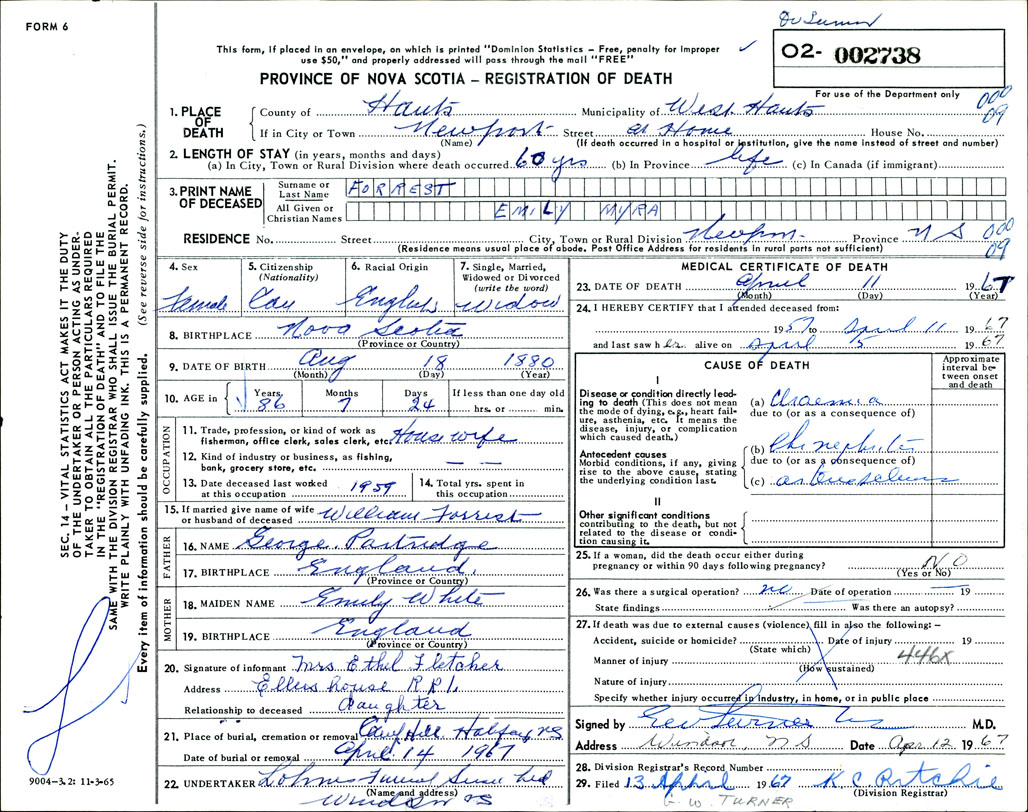 FORM 6
Dr Turner
This form, if placed in an envelope, on which is printed "Dominion Statistics – Free, penalty for improper
use $50," and properly addressed will pass through the mail "FREE"
02- 002738
PROVINCE OF NOVA SCOTIA – REGISTRATION OF DEATH
For use of the Department only
000
09
1. PLACE OF DEATH
County of Hants Municipality of West Hants
If in City or Town Newport Street at Home House No.
(Name) (If death occurred in a hospital or institution, give the name instead of street and number)
2. LENGTH OF STAY (in years, months and days)
(a) In City, Town or Rural Division where death occurred 60 yrs (b) In Province life (c) In Canada (if immigrant)
3. PRINT NAME OF DECEASED
Surname or Last Name FORREST
All Given or Christian Names EMILY MYRA
RESIDENCE No. Street City, Town or Rural Division Province N S
000
09
(Residence means usual place of abode. Post Office Address for residents in rural parts not sufficient)
4. Sex Female
5. Citizenship (Nationality) Can
6. Racial Origin English
7. Single, Married, Widowed or Divorced (write the word) Widow
8. BIRTHPLACE Nova Scotia
(Province or Country)
9. DATE OF BIRTH Aug 18 1880
(Month) (Day) (Year)
10. AGE in Years 86 Months 7 Days 24 If less than one day old hrs. or min.
OCCUPATION
11. Trade, profession, or kind of work as fisherman, office clerk, sales clerk, etc. Housewife
12. Kind of industry or business, as fishing, bank, grocery store, etc. — —
13. Date deceased last worked at this occupation 1959
14. Total yrs. spent in this occupation
15. If married give name of wife or husband of deceased William Forrest
FATHER
16. NAME George Partridge
17. BIRTHPLACE England.
(Province or Country)
MOTHER
18. MAIDEN NAME Emily White
19. BIRTHPLACE England
(Province or Country)
20. Signature of informant Mrs Ethel Fletcher
Address Ellershouse R R 1.
Relationship to deceased daughter
21. Place of burial, cremation or removal Hill N.S
Date of burial or removal April 14 1967
22. UNDERTAKER Funeral
(Name and address)
Windsor NS
MEDICAL CERTIFICATE OF DEATH
23. DATE OF DEATH April 11 1967
(Month) (Day) (Year)
24. I HEREBY CERTIFY that I attended deceased from:
1957 to April 11 1967
and last saw her alive on April 5 1967
CAUSE OF DEATH
Approximate interval between onset and death
I
Disease or condition directly leading to death (This does not mean the mode of dying, e.g., heart failure, asthenia, etc. It means the disease, injury, or complication which caused death.)
(a) Uraemia
due to (or as a consequence of)
Antecedent causes
Morbid conditions, if any, giving rise to the above cause, stating the underlying condition last.
(b) Ch nephritis
due to (or as a consequence of)
(c)
II
Other significant conditions contributing to the death, but not related to the disease or condition causing it.
25. If a woman, did the death occur either during pregnancy or within 90 days following pregnancy? NO
(Yes or No)
26. Was there a surgical operation? no Date of operation — 19
State findings Was there an autopsy?
27. If death was due to external causes (violence) fill in also the following: –
Accident, suicide or homicide? Date of injury 19
(State which)
446X
Manner of injury
(How sustained)
Nature of injury
Specify whether injury occurred in industry, in home, or in public place
Signed by Geo Turner M.D.
Address Windsor, N S Date Apr 12 1967
28. Division Registrar's Record Number
29. Filed 13 April 1967 K. C. Ritchie
(Division Registrar)
G. W. TURNER
SEC. 14 – VITAL STATISTICS ACT MAKES IT THE DUTY
OF THE UNDERTAKER OR PERSON ACTING AS UNDER-
TAKER TO OBTAIN ALL THE PARTICULARS REQUIRED
IN THE "REGISTRATION OF DEATH" AND TO FILE THE
SAME WITH THE DIVISION REGISTRAR WHO SHALL ISSUE THE BURIAL PERMIT.
WRITE PLAINLY WITH UNFADING INK. THIS IS A PERMANENT RECORD.
Every item of information should be carefully supplied. (See reverse side for instructions.)
9004-3.2: 11-3-65